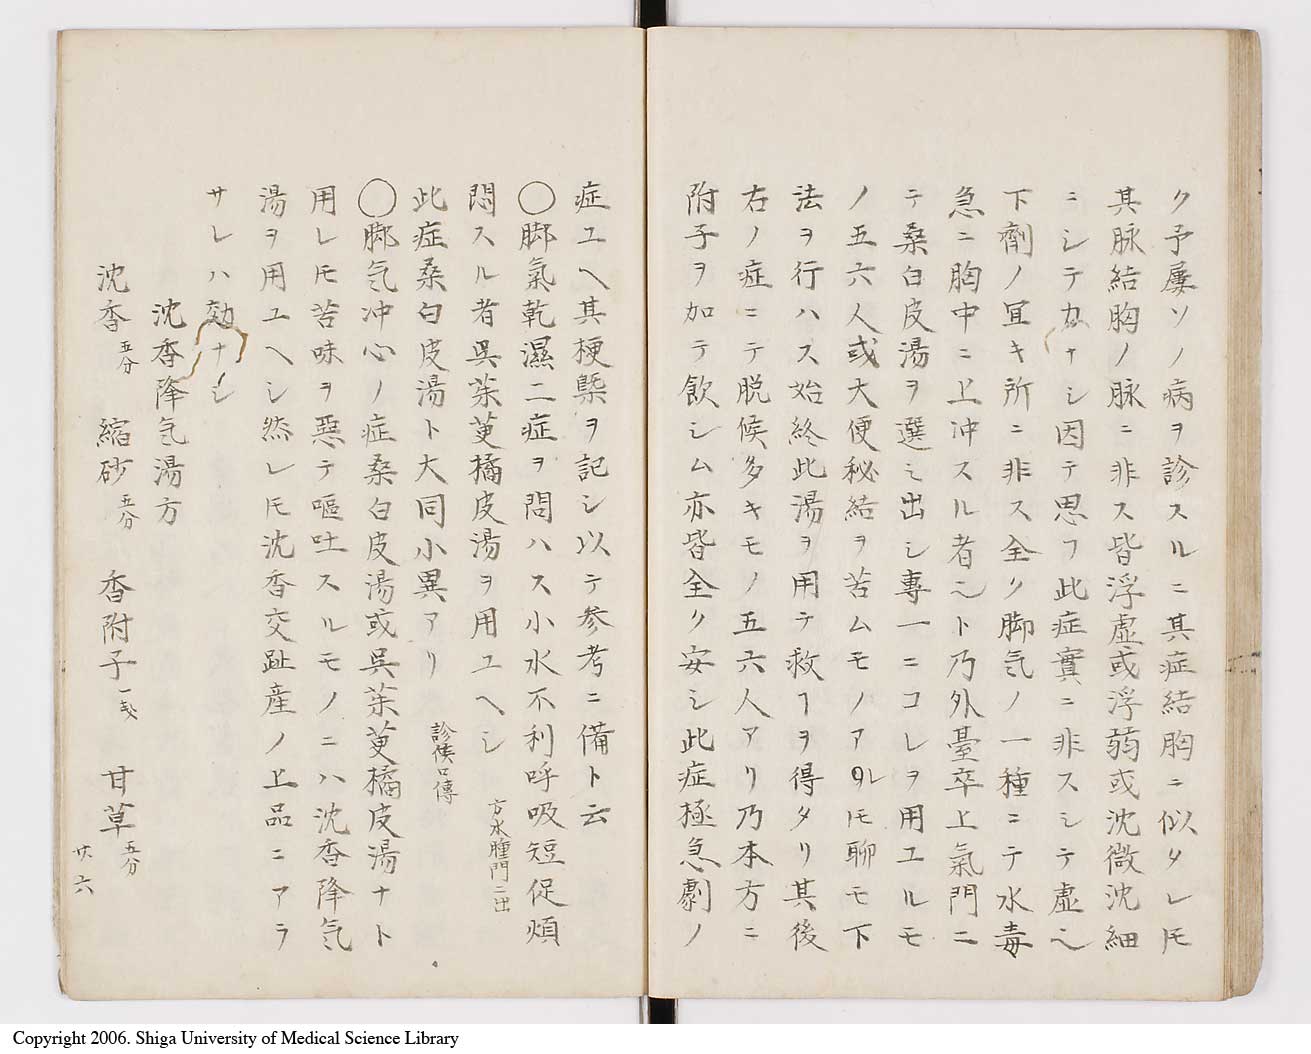 ク予屢ソノ病ヲ診スルニ其症結胸ニ似タレ𪜈
其脉結胸ノ脉ニ非ス皆浮虚或浮弱或沈微沈細
ニシテ力ナシ因テ思フ此症實ニ非スシテ虚也
下劑ノ冝キ所ニ非ス全ク脚気ノ一種ニテ水毒
急ニ胸中ニ上冲スル者也ト乃外臺卒上氣門ニ
テ桑白皮湯ヲ選ミ出シ專一ニコレヲ用ユルモ
ノ五六人或大便秘結ヲ苦ムモノアレ𪜈聊モ下
法ヲ行ハス始終此湯ヲ用テ救ヿヲ得タリ其後
右ノ症ニテ脱候多キモノ五六人アリ乃本方ニ
附子ヲ加テ飲シム亦皆全ク安シ此症極急劇ノ
症ユヘ其梗槩ヲ記シ以テ参考ニ備ト云
〇脚氣乾濕二症ヲ問ハス小水不利呼吸短促煩
悶スル者呉茱萸橘皮湯ヲ用ユヘシ 方水腫門ニ出
此症桑白皮湯ト大同小異アリ 診候口傳
〇脚気冲心ノ症桑白皮湯或呉茱萸橘皮湯ナト
用レ𪜈苦味ヲ惡テ嘔吐スルモノニハ沈香降気
湯ヲ用ユヘシ然レ𪜈沈香交趾産ノ上品ニアラ
サレハ効ナシ
沈香降気湯方
沈香 五分 縮砂 五分 香附子 一戔 甘草 五分
廿六
Copyright 2006. Shiga University of Medical Science Library